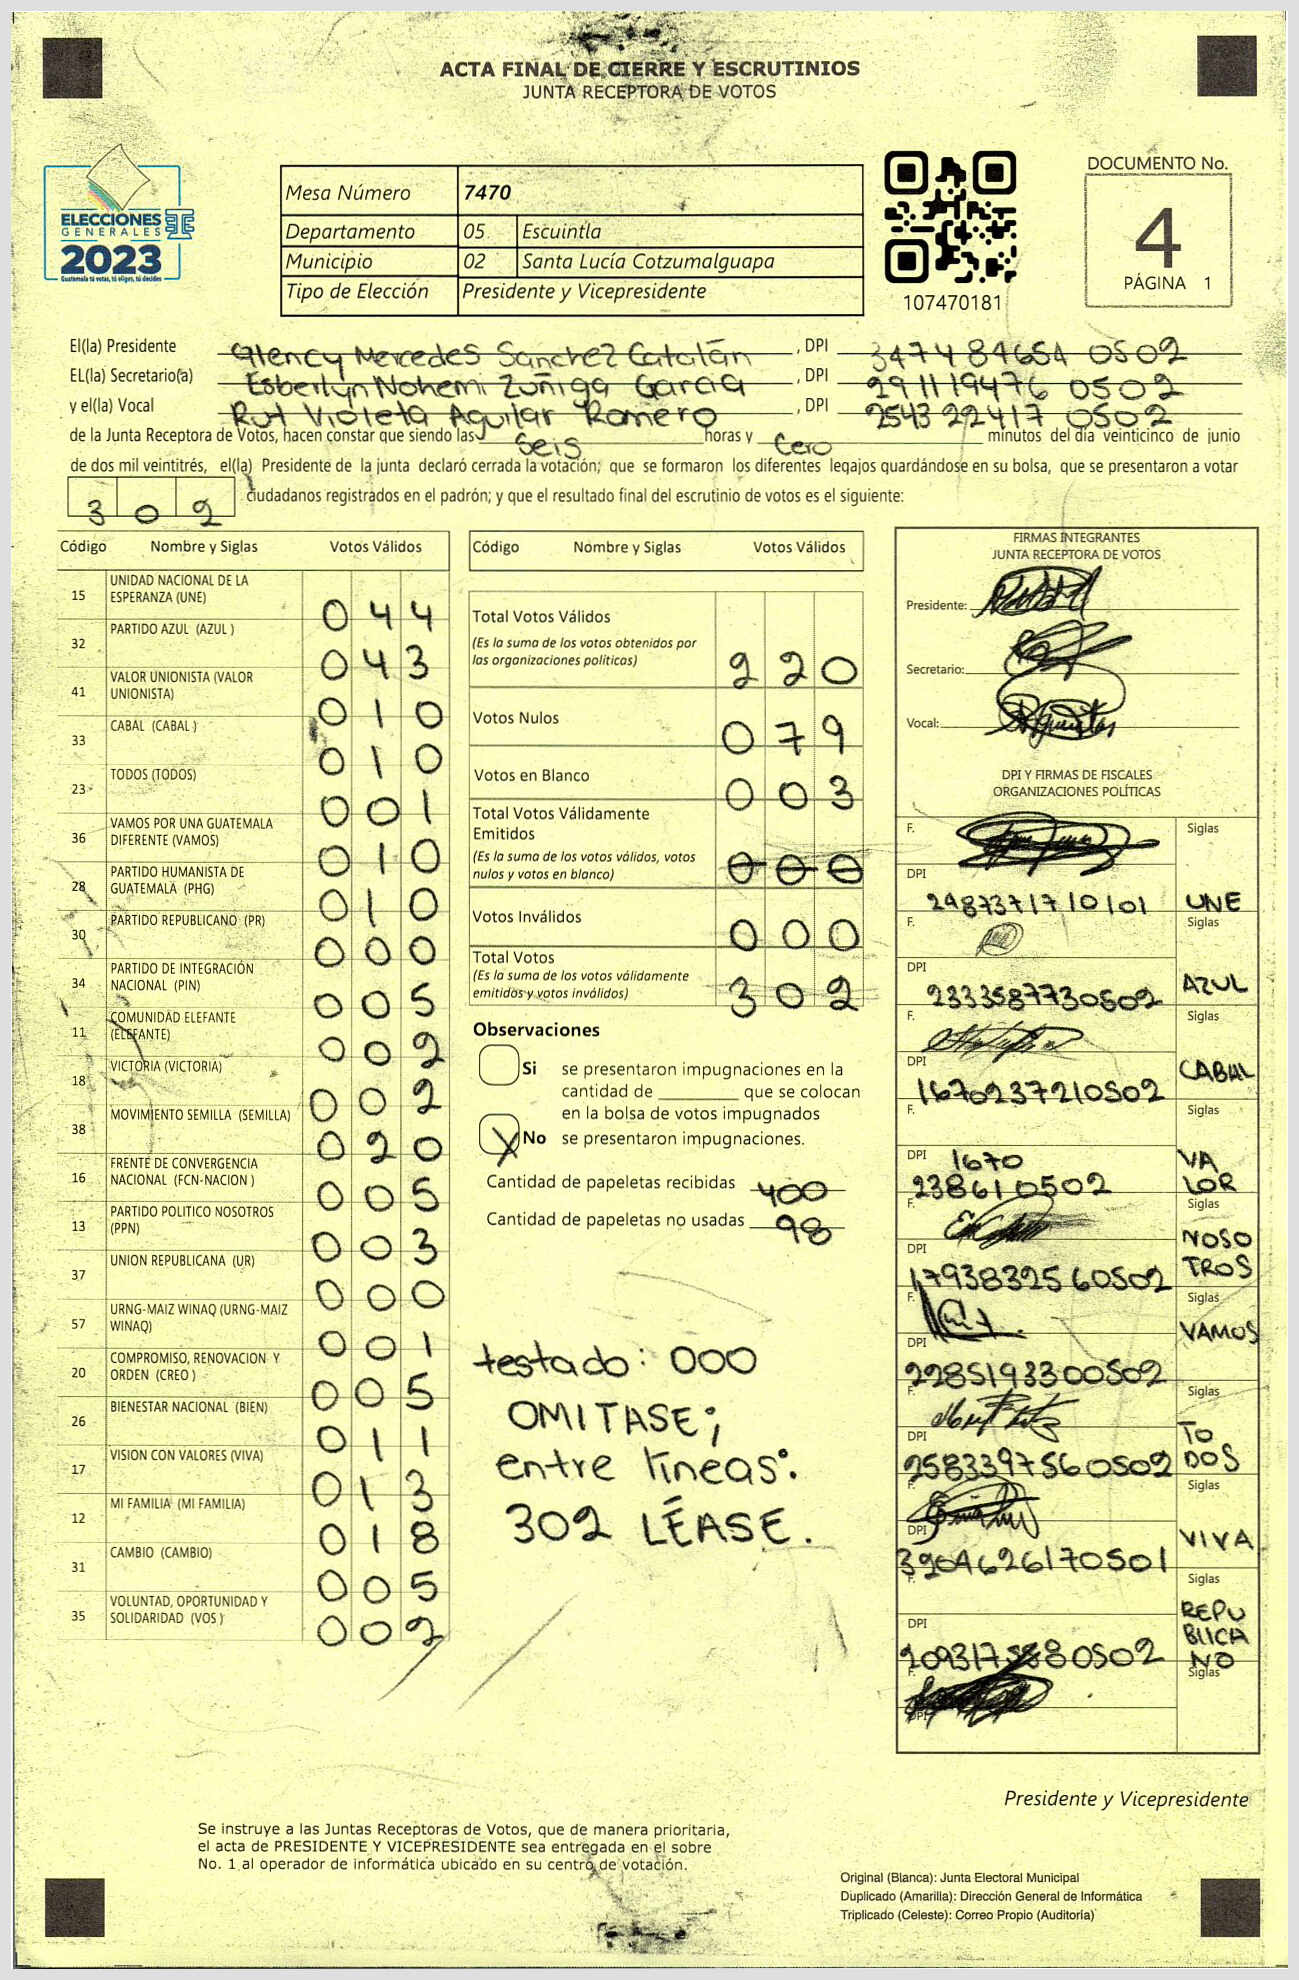 ACTA FINAL DE CIERRE Y ESCRUTINIOS
JUNTA RECEPTORA DE VOTOS
ELECCIONES
GENERALES
2023
Guatemala tú votas, tú eliges, tú decides
Mesa Número 7470
Departamento 05 Escuintla
Municipio 02 Santa Lucía Cotzumalguapa
Tipo de Elección Presidente y Vicepresidente
107470181
DOCUMENTO No.
4
PÁGINA 1
El(la) Presidente Glency Mercedes Sanchez Catalán, DPI 347484654 0502
EL(la) Secretario(a) Esberlyn Nohemi Zuñiga Garcia, DPI 291119476 0502
y el(la) Vocal Rut Violeta Aguilar Romero, DPI 254322417 0502
de la Junta Receptora de Votos, hacen constar que siendo las Seis horas y Cero minutos del día veinticinco de junio
de dos mil veintitrés, el(la) Presidente de la junta declaró cerrada la votación; que se formaron los diferentes legajos guardándose en su bolsa, que se presentaron a votar
302 ciudadanos registrados en el padrón; y que el resultado final del escrutinio de votos es el siguiente:
Código Nombre y Siglas Votos Válidos
15 UNIDAD NACIONAL DE LA
ESPERANZA (UNE) 044
32 PARTIDO AZUL (AZUL ) 043
41 VALOR UNIONISTA (VALOR
UNIONISTA) 010
33 CABAL (CABAL ) 010
23 TODOS (TODOS) 001
36 VAMOS POR UNA GUATEMALA
DIFERENTE (VAMOS) 010
28 PARTIDO HUMANISTA DE
GUATEMALA (PHG) 010
30 PARTIDO REPUBLICANO (PR) 000
34 PARTIDO DE INTEGRACIÓN
NACIONAL (PIN) 005
11 COMUNIDAD ELEFANTE
(ELEFANTE) 002
18 VICTORIA (VICTORIA) 002
38 MOVIMIENTO SEMILLA (SEMILLA) 020
16 FRENTE DE CONVERGENCIA
NACIONAL (FCN-NACION ) 005
13 PARTIDO POLITICO NOSOTROS
(PPN) 003
37 UNION REPUBLICANA (UR) 000
57 URNG-MAIZ WINAQ (URNG-MAIZ
WINAQ) 001
20 COMPROMISO, RENOVACION Y
ORDEN (CREO ) 005
26 BIENESTAR NACIONAL (BIEN) 011
17 VISION CON VALORES (VIVA) 013
12 MI FAMILIA (MI FAMILIA) 018
31 CAMBIO (CAMBIO) 005
35 VOLUNTAD, OPORTUNIDAD Y
SOLIDARIDAD (VOS ) 002
Código Nombre y Siglas Votos Válidos
Total Votos Válidos
(Es la suma de los votos obtenidos por
las organizaciones políticas) 220
Votos Nulos 079
Votos en Blanco 003
Total Votos Válidamente
Emitidos
(Es la suma de los votos válidos, votos
nulos y votos en blanco) 000
Votos Inválidos 000
Total Votos
(Es la suma de los votos válidamente
emitidos y votos inválidos) 302
Observaciones
Si se presentaron impugnaciones en la
cantidad de ________ que se colocan
en la bolsa de votos impugnados
X No se presentaron impugnaciones.
Cantidad de papeletas recibidas 400
Cantidad de papeletas no usadas 98
testado: 000
OMITASE;
entre líneas:
302 LÉASE.
FIRMAS INTEGRANTES
JUNTA RECEPTORA DE VOTOS
Presidente:
Secretario:
Vocal:
DPI Y FIRMAS DE FISCALES
ORGANIZACIONES POLÍTICAS
F. Siglas
DPI 2987371710101 UNE
F. Siglas
DPI 2333587730502 AZUL
F. Siglas
DPI 1670237210502 CABAL
F. Siglas
DPI 1670 VA
238610502 LOR
F. Siglas
DPI NOSO
1793832560502 TROS
F. Siglas
DPI VAMOS
2285193300502
F. Siglas
DPI TO
2583397560502 DOS
F. Siglas
DPI VIVA
3904626170501
F. Siglas
DPI REPU
BLICA
NO
F. Siglas
DPI
Presidente y Vicepresidente
Se instruye a las Juntas Receptoras de Votos, que de manera prioritaria,
el acta de PRESIDENTE Y VICEPRESIDENTE sea entregada en el sobre
No. 1 al operador de informática ubicado en su centro de votación.
Original (Blanca): Junta Electoral Municipal
Duplicado (Amarilla): Dirección General de Informática
Triplicado (Celeste): Correo Propio (Auditoría)